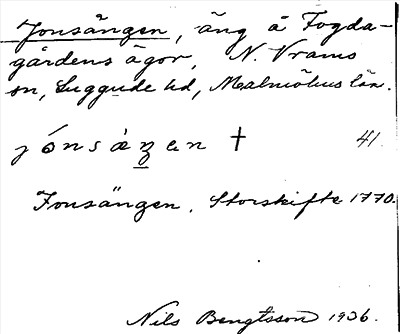 Jonsängen, äng å Fogda-
gårdens ägor, N. Vrams
sn, Luggude hd, Malmöhus län.
jónsàꞥen † 41.
Jonsängen. Storskifte 1770.
Nils Bengtsson 1936.